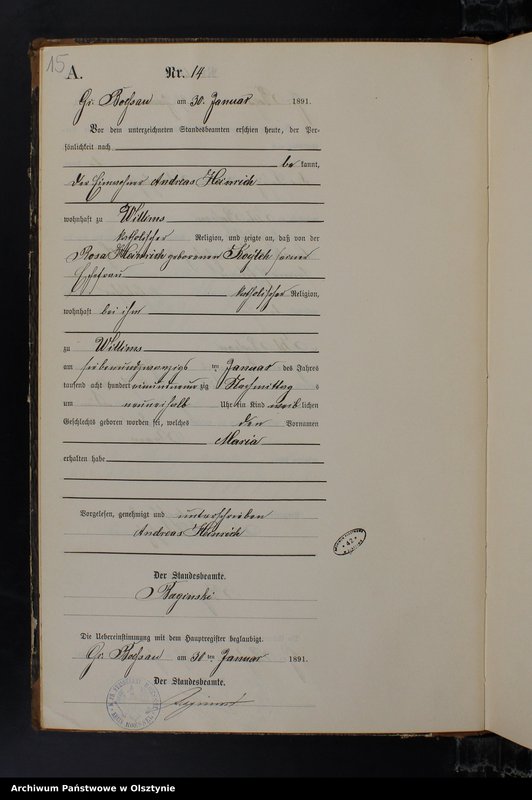 15
A.
Nr. 14
Gr. Bößau am 30. Januar 1891.
Vor dem unterzeichneten Standesbeamten erschien heute, der Per-
sönlichkeit nach
be kannt,
der Einwohner Andreas Heinrich
wohnhaft zu Willims
katholischer Religion, und zeigte an, daß von der
Rosa Heinrich geborenen seiner
Ehefrau
katholischer Religion,
wohnhaft bei ihm
zu Willims
am siebenundzwanzigsten Januar des Jahres
tausend acht hundert einundneun zig Nachmittag s
um neuneinhalb Uhr ein Kind weib lichen
Geschlechts geboren worden sei, welches den Vornamen
Maria
erhalten habe
Vorgelesen, genehmigt und unterschrieben
Andreas Heinrich
Der Standesbeamte.
Baginski
Die Uebereinstimmung mit dem Hauptregister beglaubigt.
Gr. Bößau am 30 ten Januar 1891.
Der Standesbeamte.
Baginski
Archiwum Państwowe w Olsztynie